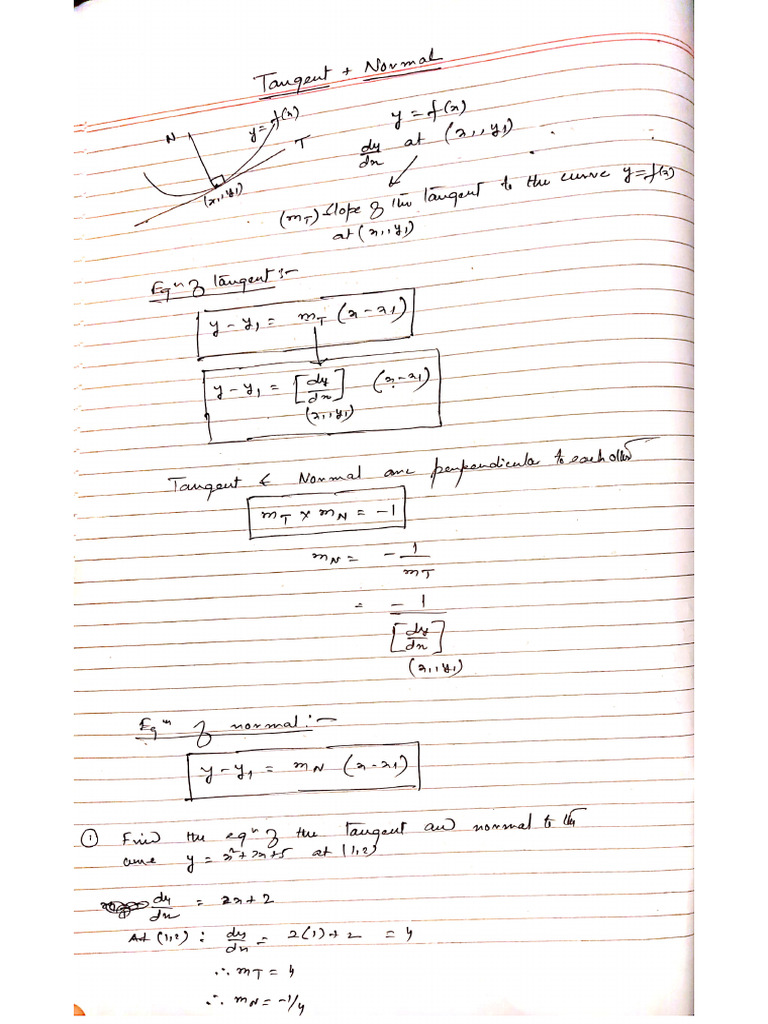 Tangent + Normal
y = f(x)
N
T
(x₁, y₁)
y = f(x)
dy/dx at (x₁, y₁)
(m_T) slope of the tangent to the curve y = f(x)
at (x₁, y₁)
Eqⁿ of tangent :-
y - y₁ = m_T (x - x₁)
y - y₁ = [dy/dx] (x - x₁)
(x₁, y₁)
Tangent & Normal are perpendicular to each other
m_T × m_N = -1
m_N = - 1/m_T
= -1/[dy/dx]
(x₁, y₁)
Eqⁿ of normal :-
y - y₁ = m_N (x - x₁)
① Find the eqⁿ of the tangent and normal to the
curve y = x² + 2x + 5 at (1,2)
dy/dx = 2x + 2
At (1,2) : dy/dx = 2(1) + 2 = 4
∴ m_T = 4
∴ m_N = -1/4